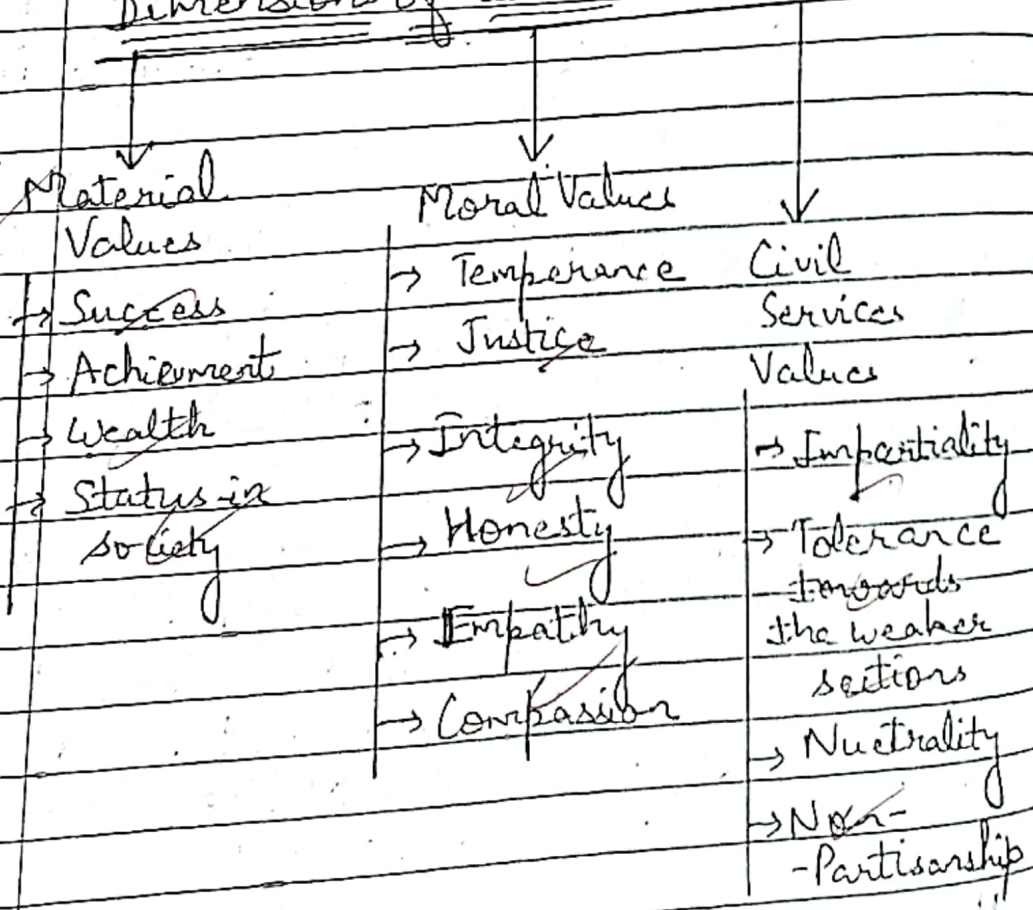 Dimension of
Material
Values
→ Success
→ Achievment
→ Wealth
→ Status in
society
Moral Values
→ Temperance
→ Justice
→ Integrity
→ Honesty
→ Empathy
→ Compassion
Civil
Services
Values
→ Impartiality
→ Tolerance
towards
the weaker
sections
→ Nuetrality
→ Non-
-Partisanship